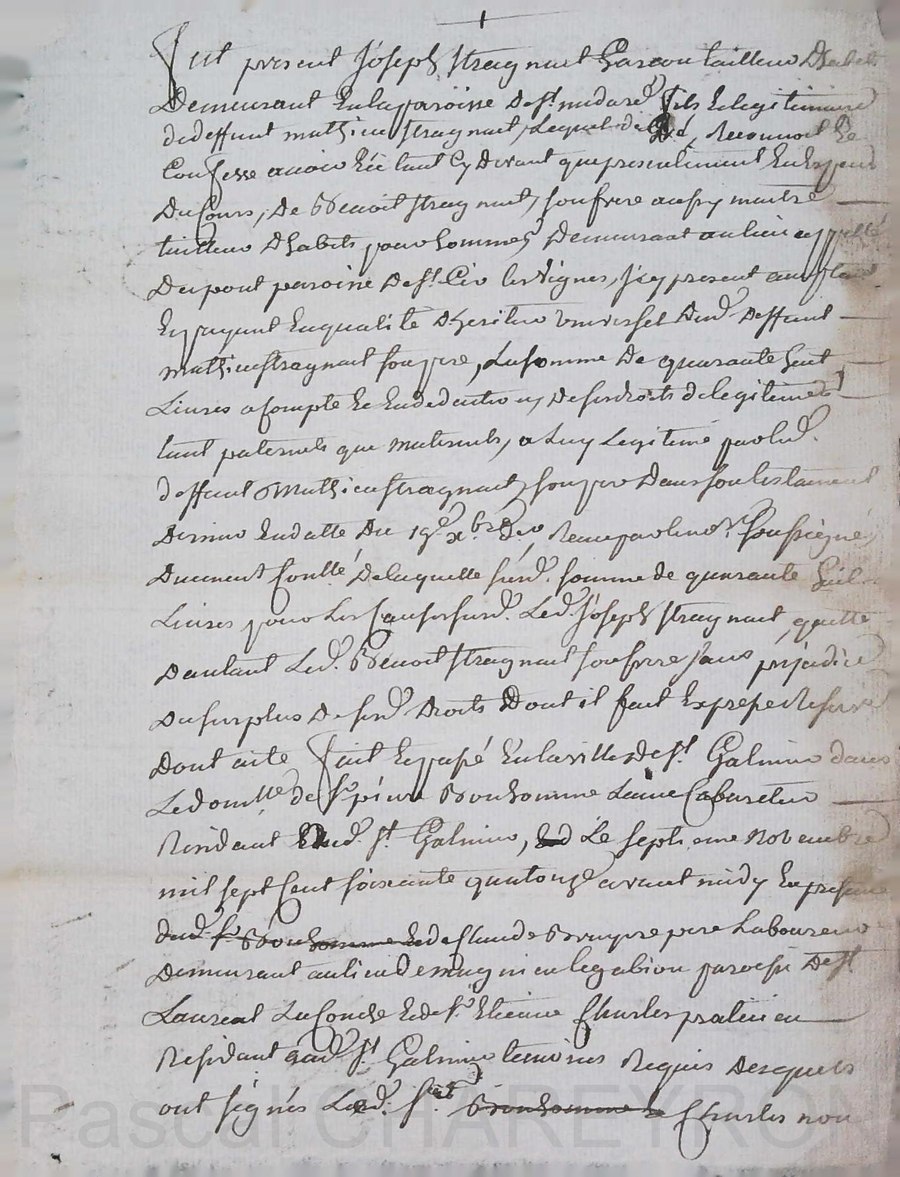 fut present Joseph stragnat Garcon tailleur Dhabits
Demeurant En la paroisse De st. medard fils Et legitimaire
de deffunt mathieu stragnat, Lequel de Gré, Reconnoit Et
Confesse avoir Eu tant Cy Devant que presentement En Especes
Du Cours, De Benoit stragnat, son frere aussy maitre
tailleur Dhabits pour hommes Demeurant au lieu appellé
Du pont paroisse De st. Cir les Vignes, Icy present
Et payant En qualité Dheritier Universel Dud. Deffunt
mathieu stragnat son pere, La somme De quarante huit
Livres a Compte Et En deduction, De ses droits de legitimes
tant paternels que maternels, a Luy Legitimé par led.
deffunt Mathieu stragnat, son pere Dans son testament
Dernier En datte Du 19e. xbre. Der Receu par le no.re soussigné
Duement Contlé De laquelle susd. somme de quarante huit
Livres pour Les Causes susd. Led. Joseph stragnat, quitte
Dautant Led. Benoit stragnat son frere sans prejudice
Du surplus De sesd. Droits Dont il fait Expresse Reserve
Dont acte fait Et passé En la ville De st. Galmier dans
Le domlle. de sr. pierre Bonhomme Laine Cabaretier
Residant Aud. st. Galmier, Le septieme Novembre
mil sept Cent soixante quatorze avant midy En presence
dud. sr. Bonhomme Et de Claude Bruyere pere Laboureur
Demeurant au lieu De magnieu le gabion paroisse De st.
Laurent La Conche Et de sr. Etienne Charles praticien
Residant aud. st. Galmier temoins Requis Desquels
ont signés Led. sr. Bonhomme Charles non
Pascal CHAREYRON